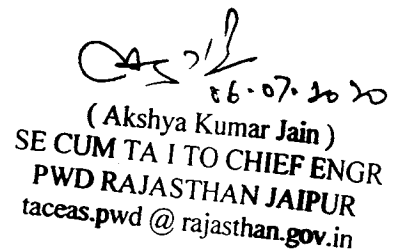 06.07.2020
( Akshya Kumar Jain )
SE CUM TA I TO CHIEF ENGR
PWD RAJASTHAN JAIPUR
taceas.pwd @ rajasthan.gov.in